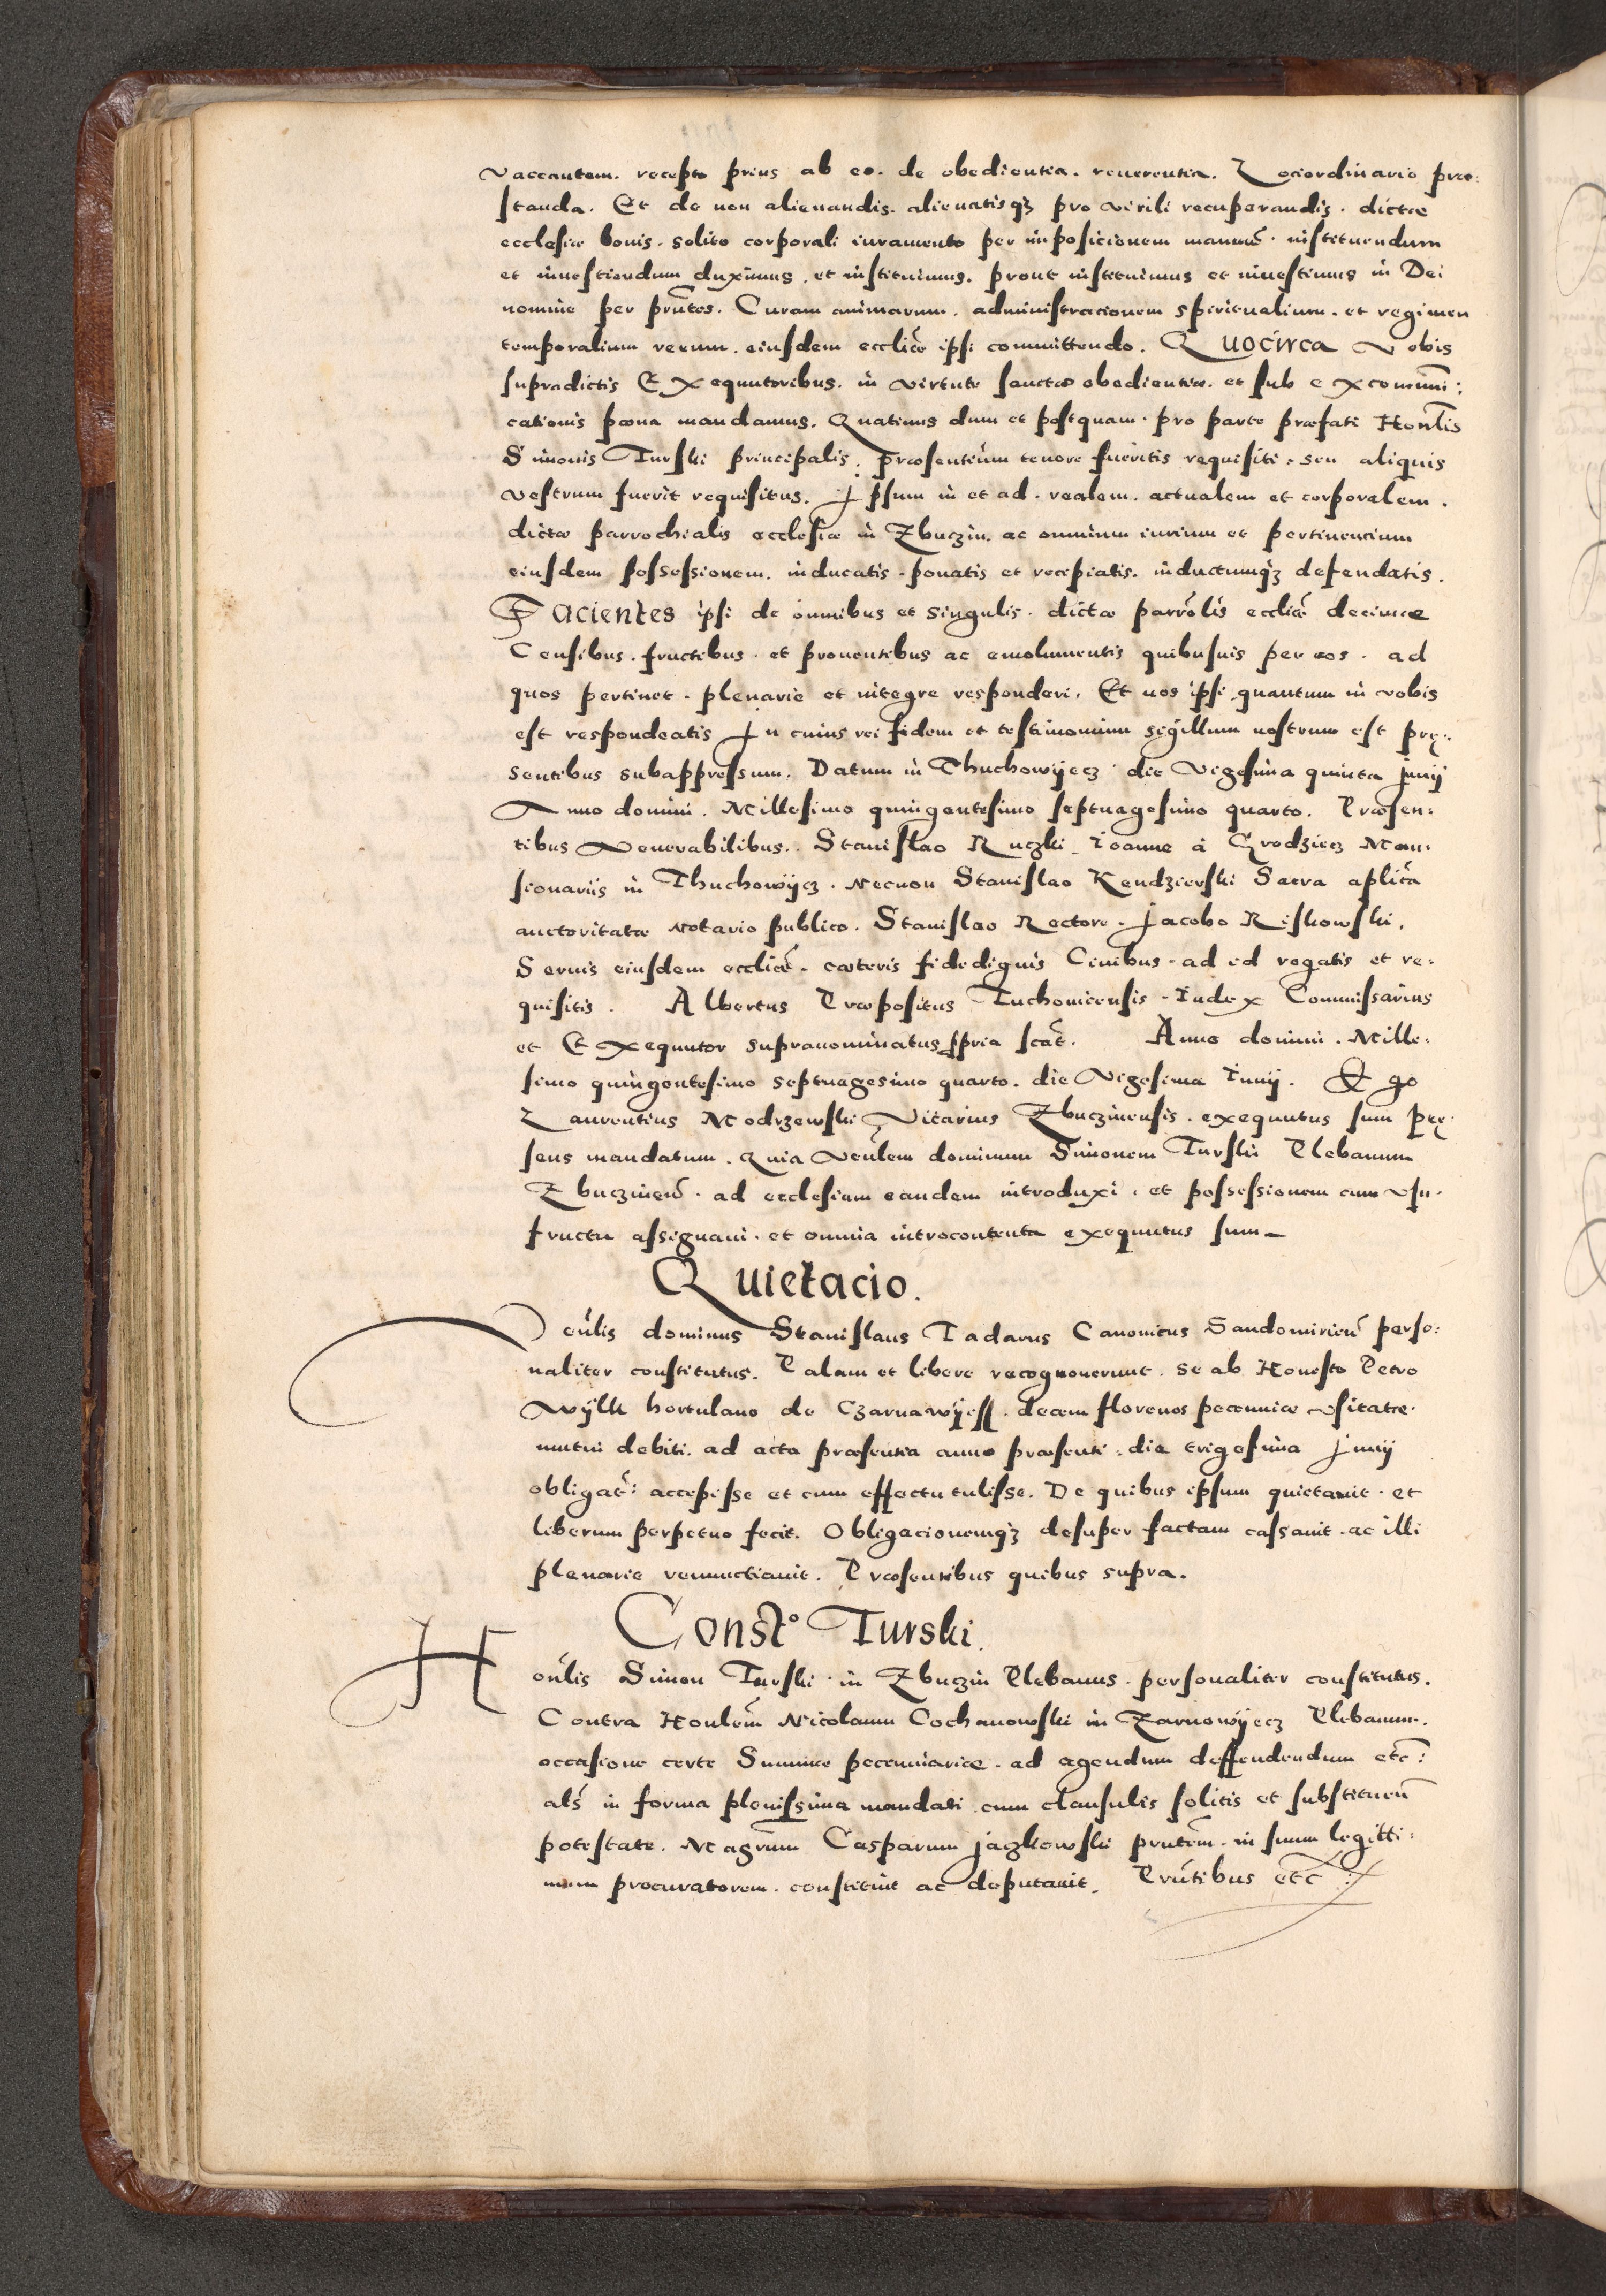 vaccantem. recepto prius ab eo. de obedientia. reuerentia. Lociordinario præ:
standa. Et de non alienandis. alienatisq₃ pro virili recuperandis. dictæ
ecclesiæ bonis. solito corporali iuramento per imposicionem manuũ. instituendum
et inuestiendum duximus. et instituimus. prout instituimus et inuestimus in Dei
nomine per prñtes. Curam animarum. administracionem spiritualium. et regimen
temporalium rerum. eiusdem eccliæ ipsi committendo. Quocirca vobis
supradictis Exequutoribus. in virtute sanctæ obedientiæ. et sub excommũni:
cationis pœna mandamus. Quatinus dum et postquam. pro parte præfati Honlis
Simonis Turski principalis. præsentium tenore fueritis requisiti. seu aliquis
vestrum fuerit requisitus. Ipsum in et ad. realem. actualem et corporalem.
dictæ parrochialis ecclesiæ in Zbuczin. ac omnium iurium et pertinencium
eiusdem possessionem. inducatis. ponatis et recipiatis. inductumq₃ defendatis.
Facientes ipsi de omnibus et singulis. dictæ parrõlis eccliæ decimæ
Censibus. fructibus. et prouentibus ac emolumentis quibusuis per eos. ad
quos pertinet. plenarie et integre responderi. Et uos ipsi quantum in vobis
est respondeatis In cuius rei fidem et testimonium sigillum nostrum est prę:
sentibus subappressum. Datum in Thuchowijecz die vigesima quinta Junij
Anno domini. Millesimo quingentesimo septuagesimo quarto. Præsen:
tibus Venerabilibus. Stanislao Ruczki. Ioanne à Grodziecz Man:
sionariis in Thuchowijcz. Necnon Stanislao Kendzierski Sacra aplica
auctoritatæ Notario publico. Stanislao Rectore. Jacobo Riskowski.
Seruis eiusdem eccliæ. cæteris fidedignis Ciuibus. ad id rogatis et re:
quisitis. Albertus Præpositus Tuchouicensis. Iudex Commissarius
et Exequutor supranominatus ppria scãt. Anno domini. Mille:
simo quingentesimo septuagesimo quarto. die Vigesima Iunij. Ego
Laurentius Modrzewski Vicarius Zbuczinensis. exequutus sum prę:
sens mandatum. Quia Venlem dominum Simonem Turski Plebanum
Zbuczineñ. ad ecclesiam eandem introduxi. et possessionem cum vsu.
fructu assignaui. et omnia introcontenta exequutus sum_
Quietacio.
Venlis dominus Stanislaus Tadarus Canonicus Sandomirieñ perso:
naliter constitutus. Palam et libere recognouerunt. se ab Honesto Petro
Wylk hortulano de Czarnawijess. decem florenos pecuniæ vsitatæ.
mutui debiti. ad acta præsentia anno præsenti. die trigesima Junij
obligat: accepisse et cum effectu tulisse. De quibus ipsum quietauit. et
liberum perpetuo fecit. Obligacionemq₃ desuper factam cassauit. ac illi
plenarie renunctiauit. Præsentibus quibus supra.
Constº Turski.
Honlis Simon Turski. in Zbuczin Plebanus. personaliter constitutus.
Contra Honlem Nicolaum Cochanowski in Zarnowijecz Plebanum.
occasione certe Summæ pecuniariæ. ad agendum deffendendum etc:
als in forma plenissima mandati cum clausulis solitis et substitueñ
potestate. Magrum Casparum Jaczkowski prntem. in suum legitti:
mum procuratorem. constituit ac deputauit. Prñtibus etc: